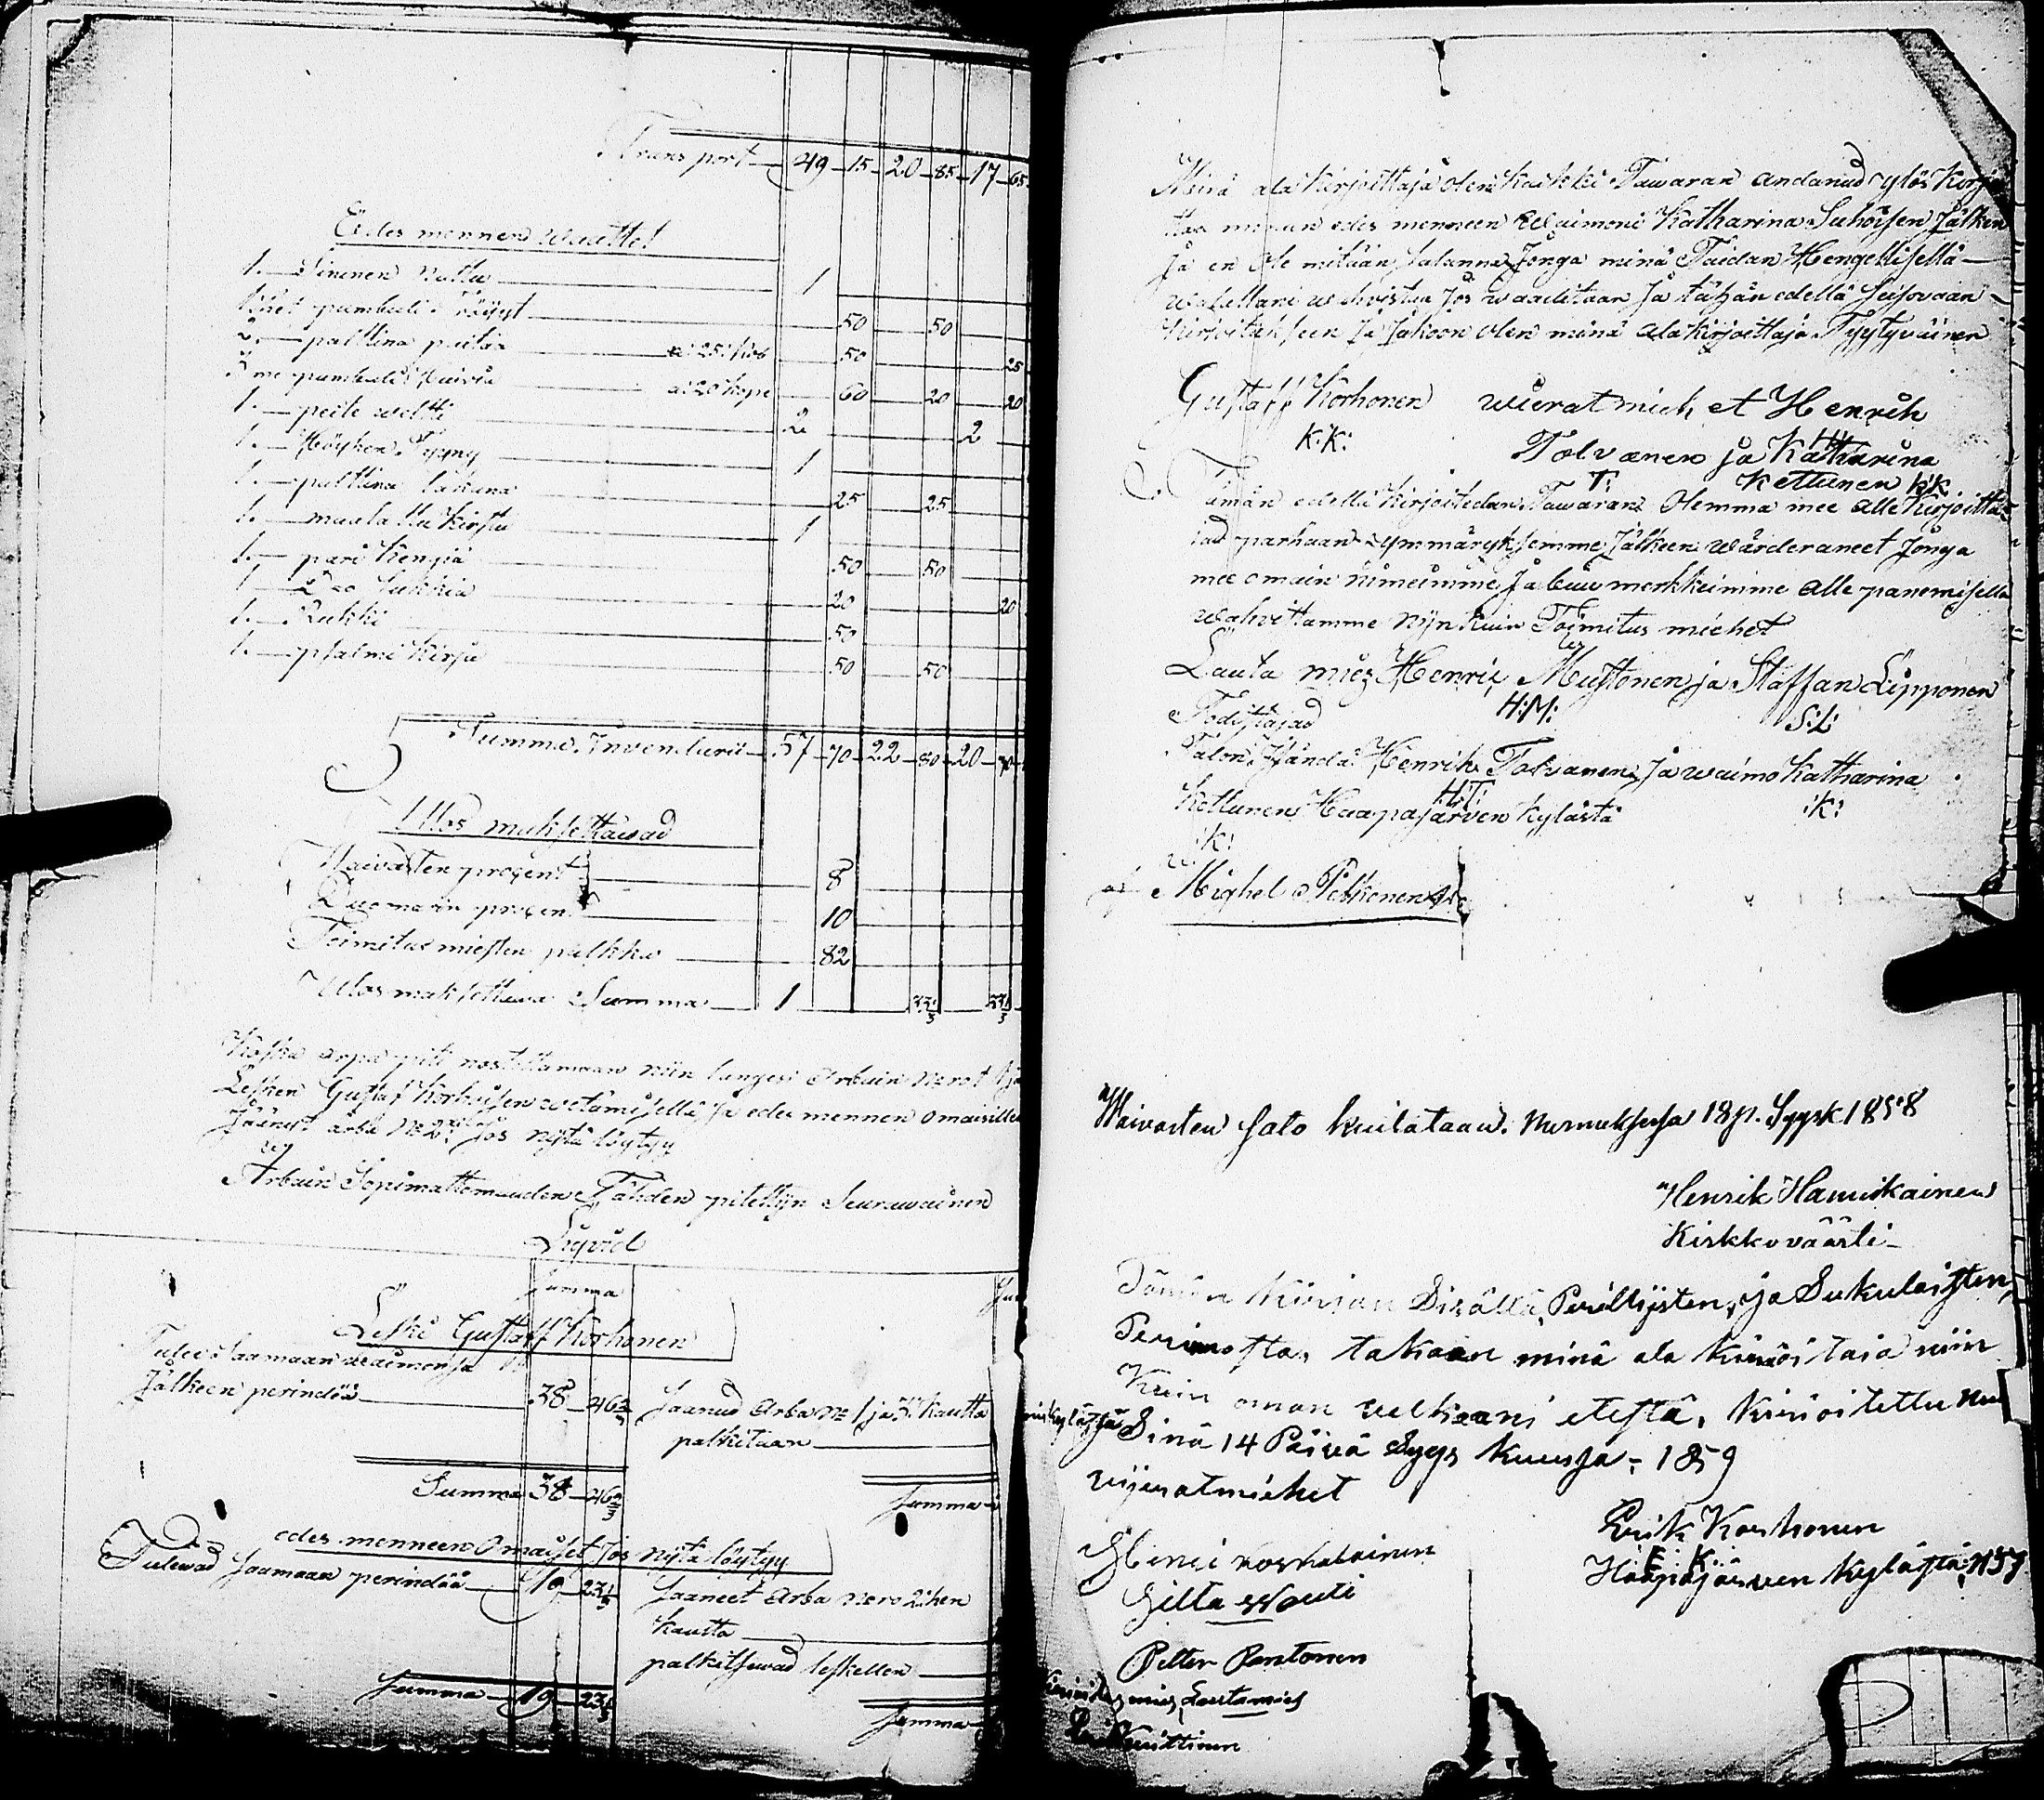 Transport 49 15 20 85 17 65
Edes mennen waattet
1. Sininen 1
1 het pumbuli röijyt 50 50
2. palttina paitaa a 25 kop 50 25
3 me pumbuli huivia a 20 kope 60 20 20
1. peite weltti 2 2
1. Höyhen Tyyny 1
1. palttina lakana 25 25
1. maalattu kirstu 1
1. pari kengiä 50 50
1 Do sukkia 20 20
1. Rukki 50
1. psalmi kirja 50 50
Summa Inventurii 57 70 22 80 20 70
Ulos maksettawad
Waiwasten procent 8
Duomarin procent 10
Toimitus miesten palkka 82
Ulos maksettawa Summa 1 33 1/3 33 1/3
Koska arpa piti nostettamaan niin langesi Arbain Nerot 1 ja
Lesken Gustaf Korhoisen wetämisellä ja edes mennen omaisille
Jäänyt arba No 2 jos nijtä löytyy
Arbain Sopimattomuuden Tähden pitettijn Seurawainen
Liqvid
Summa
Leski Gustaff Korhonen
Tulee Saamaan waimonsa
Jälkeen perindöä 38 46 2/3 Saanud Arba No 1 ja 3 kautta
palkitaan
Summa 38 46 2/3 Summa
edes menneen Omaiset Jos nijtä löytyy
Tulewad Saamaan perindöä 19 23 1/3 Saaneet Arba Nero 2:hen
kautta
palkitsewad leskellen
Summa 19 23 1/3 Summa
Minä ala kirjoittaja olen kaikki Tawaran andanud ylös kirjo
ttaa minun edes menneen Waimoni Katharina Suhoisen Jälken
Ja en ole mitään salanna Jonga minä Taidan Hengellisellä
walallani wahvistaa Jos waaditaan Ja tähän edellä seisovaan
kirjoitukseen Ja Jakoon olen minä alakirjoittaja Tyytyväinen
Gustaff Korhonen wieratmiehet Henrik
K:K: Tolvanen ja Katharina
T: Kettunen K:K
Tämän edellä kirjoitedun Tawaran Olemma mee alle kirjoitta
tad parhaan ymmäryksemme Jälkeen wärderaneet Jonga
mee omain nimeimme Ja buu merkkeimme alle panemisella
wahvistamme nijn kuin Toimitus miehet
Lauta mies Henric Mustonen ja Staffan Lipponen
H:M: S:L:
Todistajad
Talon Isändä Henrik Tolvanen Ja waimo Katharina
H:T: K:
Kettunen Haapajärven kylästä
K:
af Mighel Pekkonen
Waivasten salo kuitataan. Nurmeksessa 18 p. Syysk 1858
Henrik Hamiskainen
Kirkkoväärti
Tämän kirjan Sisällä, Perillisten, ja Sukulaisten,
Perinnosta, takaan minä ala kirioitaia niin
Kuin oman velkaani etestä, kirioitettu Nur
kylässä Sinä 14 Päivä Syys kuussa, 1859
vijeratmiehet
Erik Korhonen
E. K.
Haapajärven kylästä N 57
Petter Pentonen
mies Lautamies